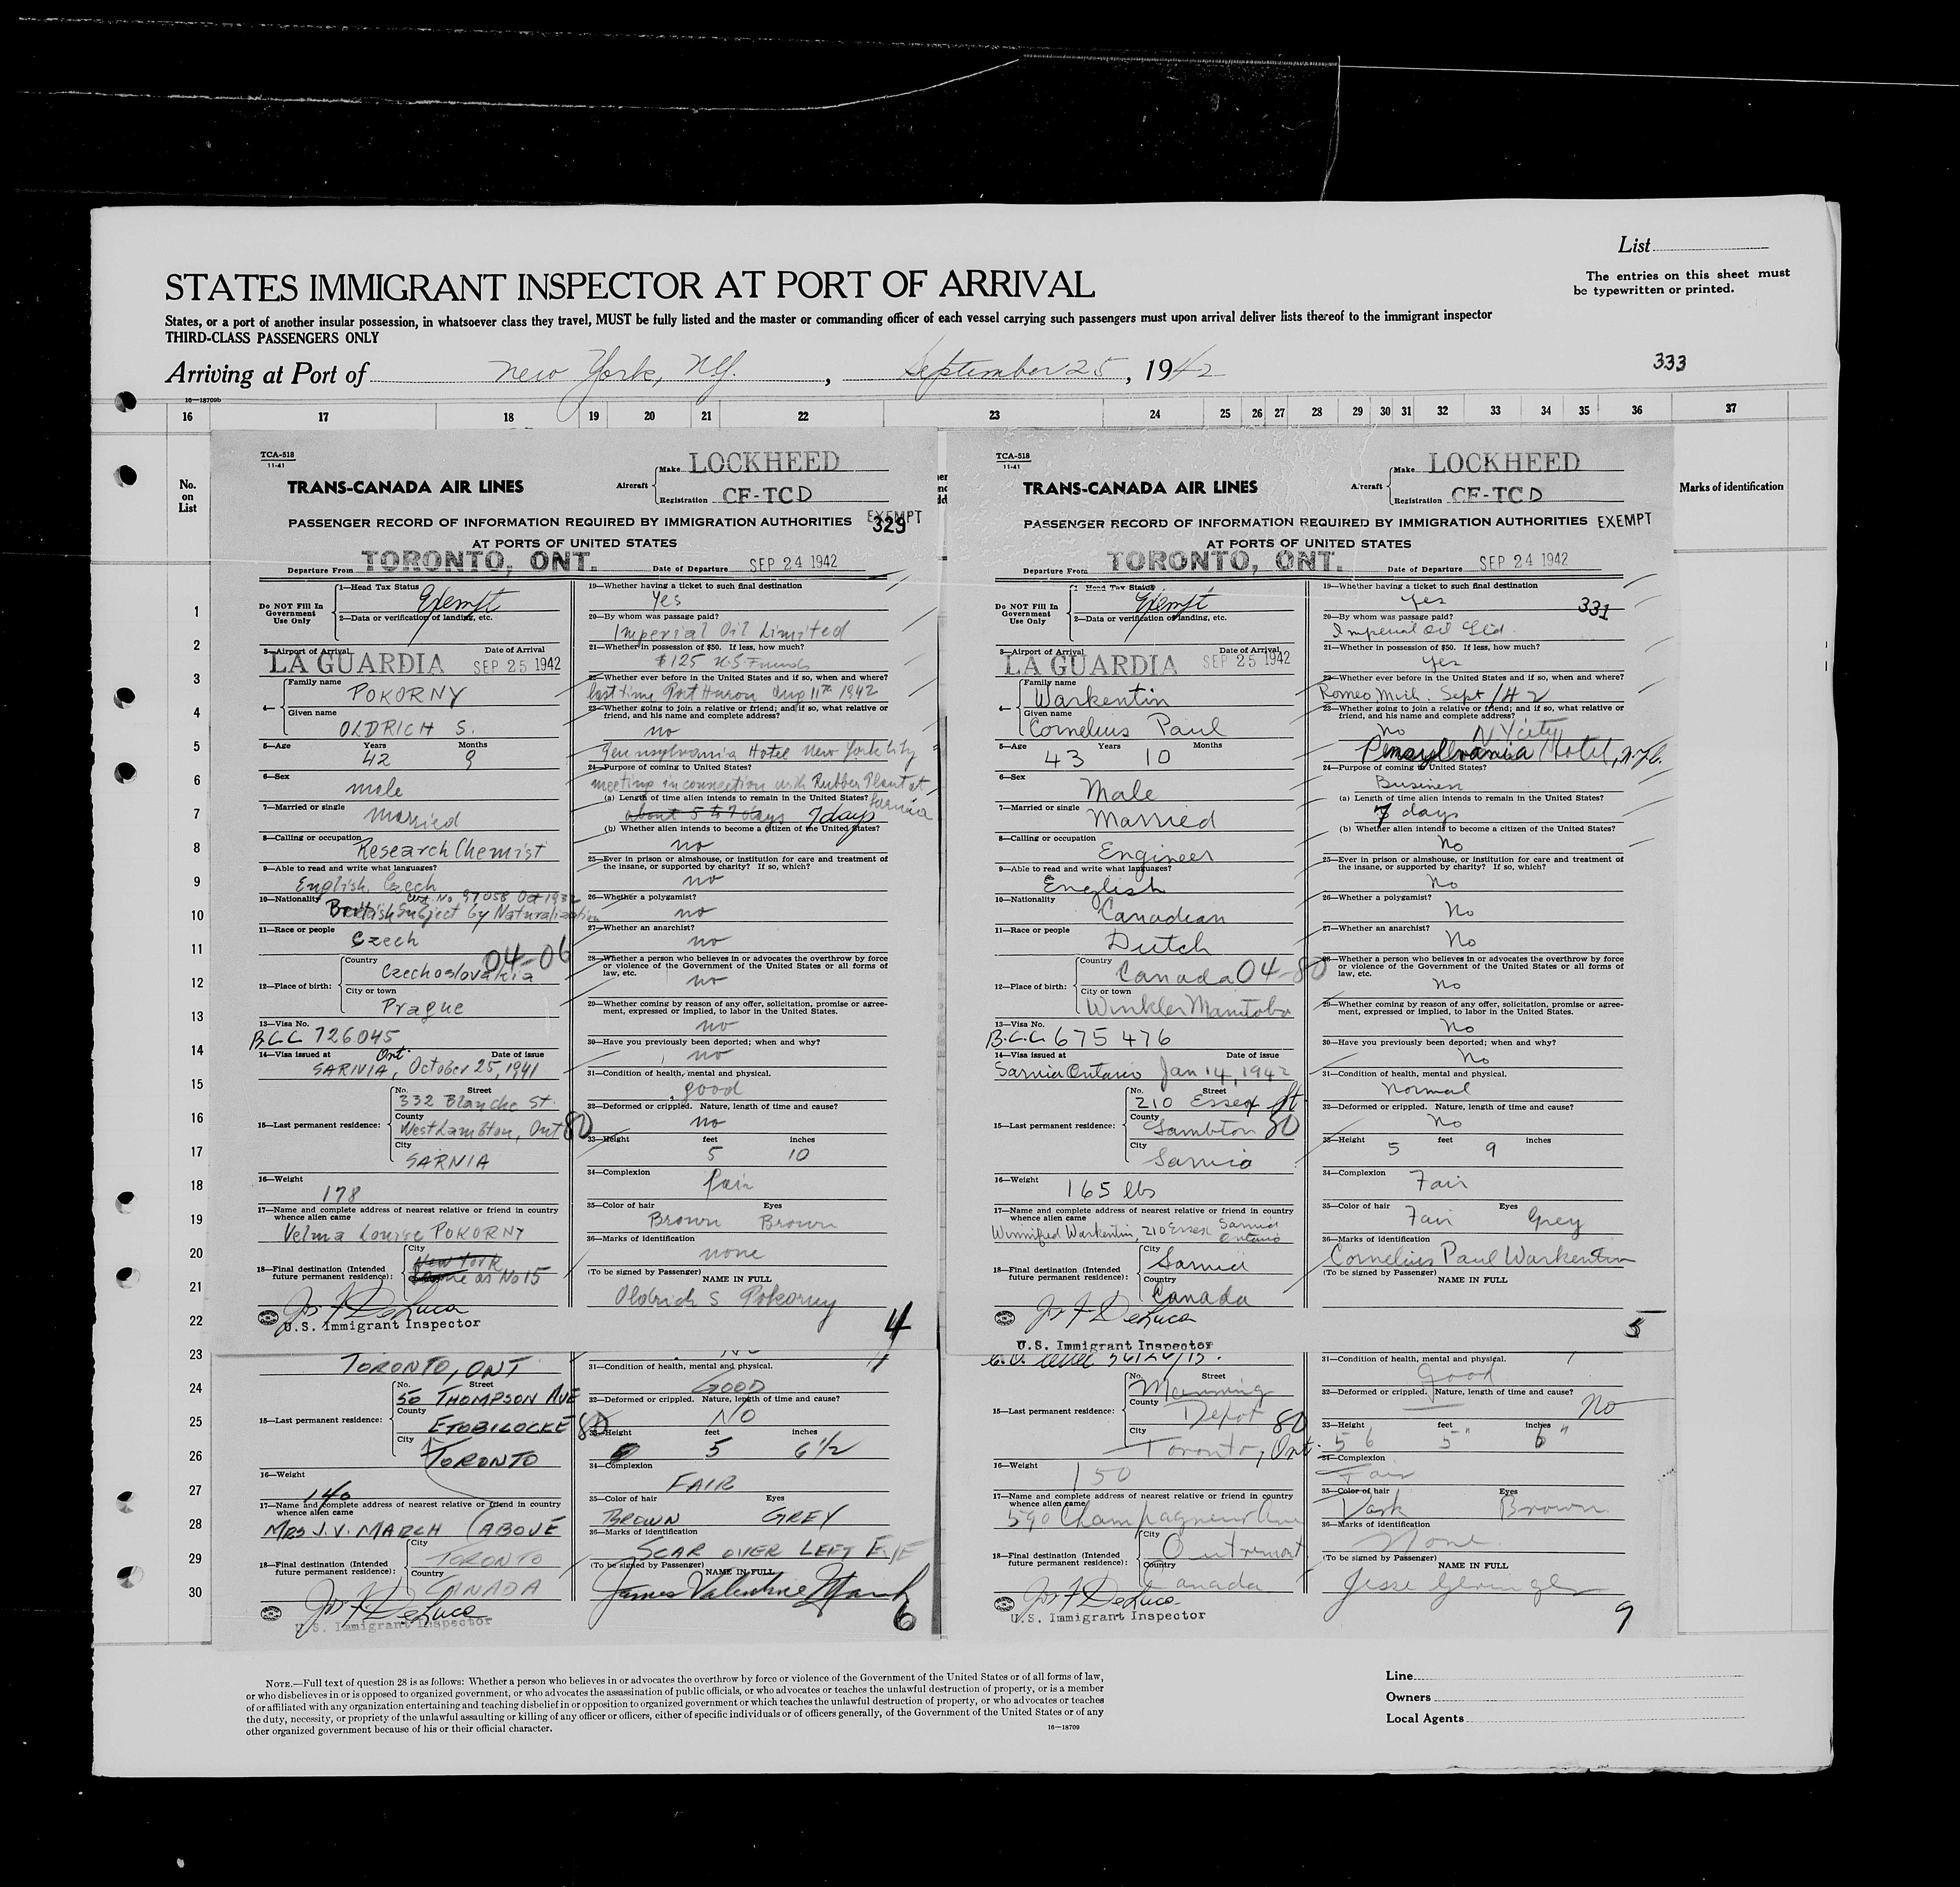 List
STATES IMMIGRANT INSPECTOR AT PORT OF ARRIVAL
The entries on this sheet must
be typewritten or printed.
States, or a port of another insular possession, in whatsoever class they travel, MUST be fully listed and the master or commanding officer of each vessel carrying such passengers must upon arrival deliver lists thereof to the immigrant inspector
THIRD-CLASS PASSENGERS ONLY
Arriving at Port of New York, NY. , September 25, 1942
333
16—18709b
16 17 18 19 20 21 22 23 24 25 26 27 28 29 30 31 32 33 34 35 36 37
No.
on
List
Marks of identification
1
2
3
4
5
6
7
8
9
10
11
12
13
14
15
16
17
18
19
20
21
22
23
24
25
26
27
28
29
30
TCA-518
11-41
TRANS-CANADA AIR LINES
Aircraft
Make LOCKHEED
Registration CF-TCD
PASSENGER RECORD OF INFORMATION REQUIRED BY IMMIGRATION AUTHORITIES
EXEMPT
329
AT PORTS OF UNITED STATES
Departure From TORONTO, ONT. Date of Departure SEP 24 1942
Do NOT Fill In
Government
Use Only
1—Head Tax Status
Exempt
2—Data or verification of landing, etc.
3—Airport of Arrival Date of Arrival
LA GUARDIA SEP 25 1942
4—
Family name
POKORNY
Given name
OLDRICH S.
5—Age Years Months
42 9
6—Sex
male
7—Married or single
married
8—Calling or occupation
Research Chemist
9—Able to read and write what languages?
English, Czech
Cert. No 97058 Oct 1932
10—Nationality
British Subject by Naturalization
11—Race or people
Czech
04-06
12—Place of birth:
Country
Czechoslovakia
City or town
Prague
13—Visa No.
B.C.C 726045
14—Visa issued at Date of issue
SARNIA, Ont. October 25, 1941
15—Last permanent residence:
No. Street
332 Blanche St.
County
West Lambton, Ont 80
City
SARNIA
16—Weight
178
17—Name and complete address of nearest relative or friend in country
whence alien came
Velma Louise POKORNY
18—Final destination (Intended
future permanent residence):
City
New York
Same as No 15
Jos F DeLuca
U.S. Immigrant Inspector
19—Whether having a ticket to such final destination
Yes
20—By whom was passage paid?
Imperial Oil Limited
21—Whether in possession of $50. If less, how much?
$125 U.S. Funds
22—Whether ever before in the United States and if so, when and where?
last time Port Huron Aug 11th 1942
23—Whether going to join a relative or friend; and if so, what relative or
friend, and his name and complete address?
no
Pennsylvania Hotel New York City
24—Purpose of coming to United States?
meeting in connection with Rubber Plant at
Sarnia
(a) Length of time alien intends to remain in the United States?
about 5 to 7 days 7 days
(b) Whether alien intends to become a citizen of the United States?
no
25—Ever in prison or almshouse, or institution for care and treatment of
the insane, or supported by charity? If so, which?
no
26—Whether a polygamist?
no
27—Whether an anarchist?
no
28—Whether a person who believes in or advocates the overthrow by force
or violence of the Government of the United States or all forms of
law, etc.
no
29—Whether coming by reason of any offer, solicitation, promise or agree-
ment, expressed or implied, to labor in the United States.
no
30—Have you previously been deported; when and why?
no
31—Condition of health, mental and physical.
good
32—Deformed or crippled. Nature, length of time and cause?
no
33—Height feet inches
5 10
34—Complexion
fair
35—Color of hair Eyes
Brown Brown
36—Marks of identification
none
(To be signed by Passenger)
NAME IN FULL
Oldrich S Pokorny
4
TCA-518
11-41
TRANS-CANADA AIR LINES
Aircraft
Make LOCKHEED
Registration CF-TCD
PASSENGER RECORD OF INFORMATION REQUIRED BY IMMIGRATION AUTHORITIES
EXEMPT
AT PORTS OF UNITED STATES
Departure From TORONTO, ONT. Date of Departure SEP 24 1942
Do NOT Fill In
Government
Use Only
1—Head Tax Status
Exempt
2—Data or verification of landing, etc.
3—Airport of Arrival Date of Arrival
LA GUARDIA SEP 25 1942
4—
Family name
Warkentin
Given name
Cornelius Paul
5—Age Years Months
43 10
6—Sex
Male
7—Married or single
Married
8—Calling or occupation
Engineer
9—Able to read and write what languages?
English
10—Nationality
Canadian
11—Race or people
Dutch
12—Place of birth:
Country
Canada 04-80
City or town
Winkler Manitoba
13—Visa No.
B.C.C. 675476
14—Visa issued at Date of issue
Sarnia Ontario Jan 14, 1942
15—Last permanent residence:
No. Street
210 Essex St.
County
Lambton 80
City
Sarnia
16—Weight
165 lbs
17—Name and complete address of nearest relative or friend in country
whence alien came
Winnifred Warkentin, 210 Essex Sarnia
Ontario
18—Final destination (Intended
future permanent residence):
City
Sarnia
Country
Canada
Jos F DeLuca
U.S. Immigrant Inspector
19—Whether having a ticket to such final destination
yes
331
20—By whom was passage paid?
Imperial Oil Ltd.
21—Whether in possession of $50. If less, how much?
yes
22—Whether ever before in the United States and if so, when and where?
Romeo Mich. Sept 1/42
23—Whether going to join a relative or friend; and if so, what relative or
friend, and his name and complete address?
No N Y city
Pensyllvania Hotel, N.Y.C.
24—Purpose of coming to United States?
Business
(a) Length of time alien intends to remain in the United States?
7 days
(b) Whether alien intends to become a citizen of the United States?
No
25—Ever in prison or almshouse, or institution for care and treatment of
the insane, or supported by charity? If so, which?
No
26—Whether a polygamist?
No
27—Whether an anarchist?
No
28—Whether a person who believes in or advocates the overthrow by force
or violence of the Government of the United States or all forms of
law, etc.
No
29—Whether coming by reason of any offer, solicitation, promise or agree-
ment, expressed or implied, to labor in the United States.
No
30—Have you previously been deported; when and why?
No
31—Condition of health, mental and physical.
Normal
32—Deformed or crippled. Nature, length of time and cause?
No
33—Height feet inches
5 9
34—Complexion
Fair
35—Color of hair Eyes
Fair Grey
36—Marks of identification
Cornelius Paul Warkentin
(To be signed by Passenger)
NAME IN FULL
5
TORONTO, ONT
15—Last permanent residence:
No. Street
50 THOMPSON AVE
County
ETOBICOCKE 80
City
TORONTO
16—Weight
140
17—Name and complete address of nearest relative or friend in country
whence alien came
MRS J.V. MARCH (ABOVE
18—Final destination (Intended
future permanent residence):
City
TORONTO
Country
CANADA
Jos F DeLuca
U.S. Immigrant Inspector
31—Condition of health, mental and physical.
GOOD
32—Deformed or crippled. Nature, length of time and cause?
NO
33—Height feet inches
5 6 1/2
34—Complexion
FAIR
35—Color of hair Eyes
BROWN GREY
36—Marks of identification
SCAR OVER LEFT EYE
(To be signed by Passenger)
NAME IN FULL
James Valentine March
6
15—Last permanent residence:
No. Street
Manning
County
Depot 80
City
Toronto, Ont.
16—Weight
150
17—Name and complete address of nearest relative or friend in country
whence alien came
590 Champagneur Ave
18—Final destination (Intended
future permanent residence):
City
Outremont
Country
Canada
Jos F DeLuca
U.S. Immigrant Inspector
31—Condition of health, mental and physical.
Good
32—Deformed or crippled. Nature, length of time and cause?
No
33—Height feet inches
5 6 5" 6"
34—Complexion
Fair
35—Color of hair Eyes
Dark Brown
36—Marks of identification
None.
(To be signed by Passenger)
NAME IN FULL
Jesse
9
NOTE.—Full text of question 28 is as follows: Whether a person who believes in or advocates the overthrow by force or violence of the Government of the United States or of all forms of law,
or who disbelieves in or is opposed to organized government, or who advocates the assassination of public officials, or who advocates or teaches the unlawful destruction of property, or is a member
of or affiliated with any organization entertaining and teaching disbelief in or opposition to organized government or which teaches the unlawful destruction of property, or who advocates or teaches
the duty, necessity, or propriety of the unlawful assaulting or killing of any officer or officers, either of specific individuals or of officers generally, of the Government of the United States or of any
other organized government because of his or their official character.
16—18709
Line
Owners
Local Agents